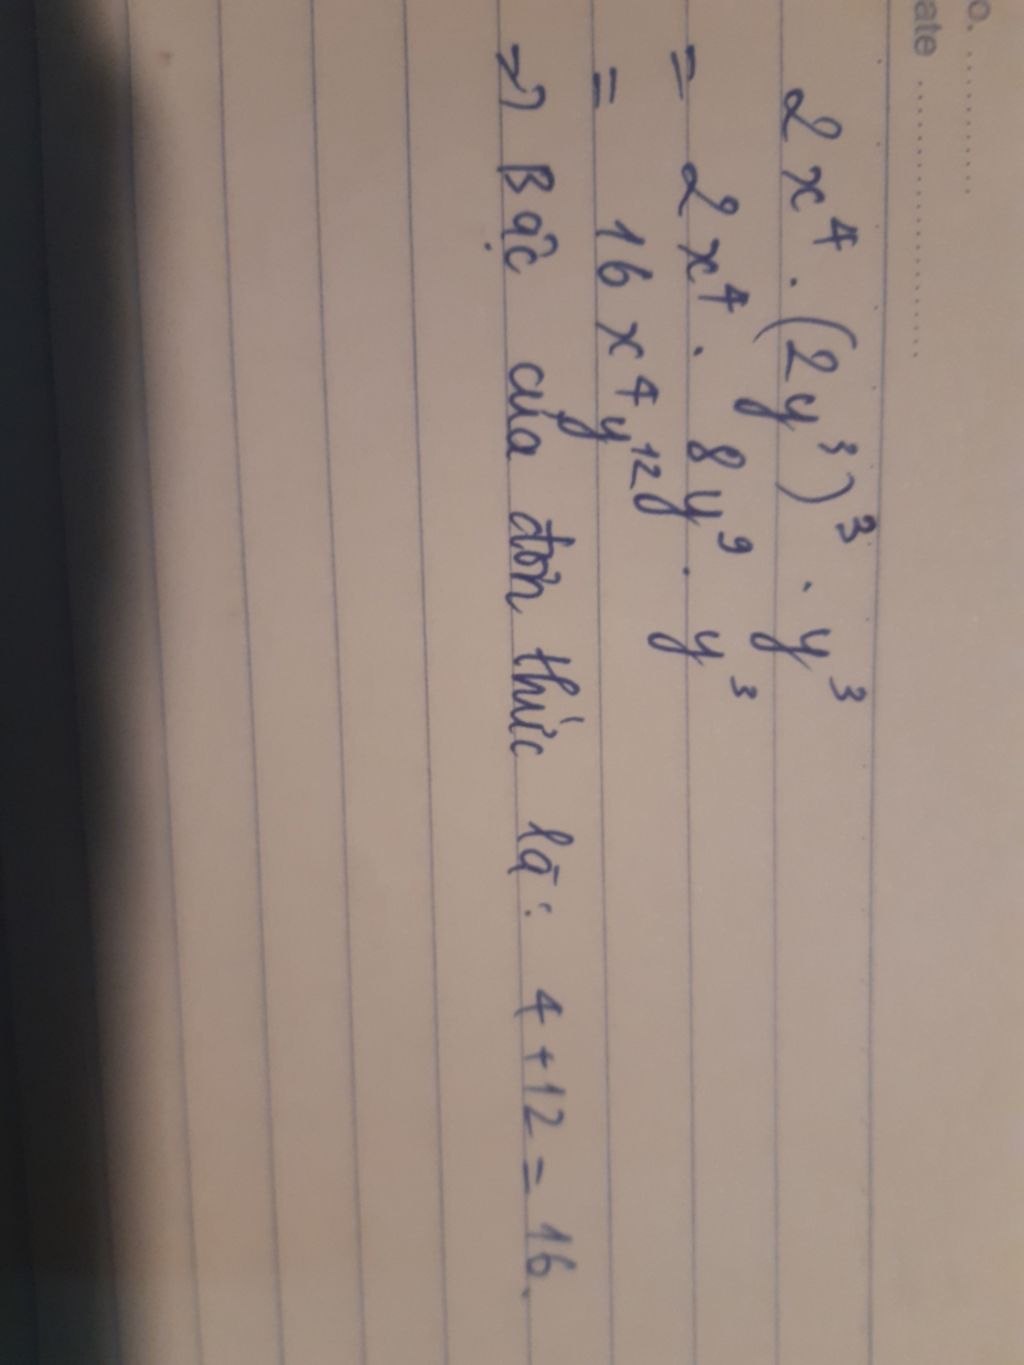 o. ............
ate ........................
2x⁴ . (2y³)³ . y³
= 2x⁴ . 8y⁹ . y³
= 16x⁴y¹²
=> Bậc của đơn thức là: 4 + 12 = 16.